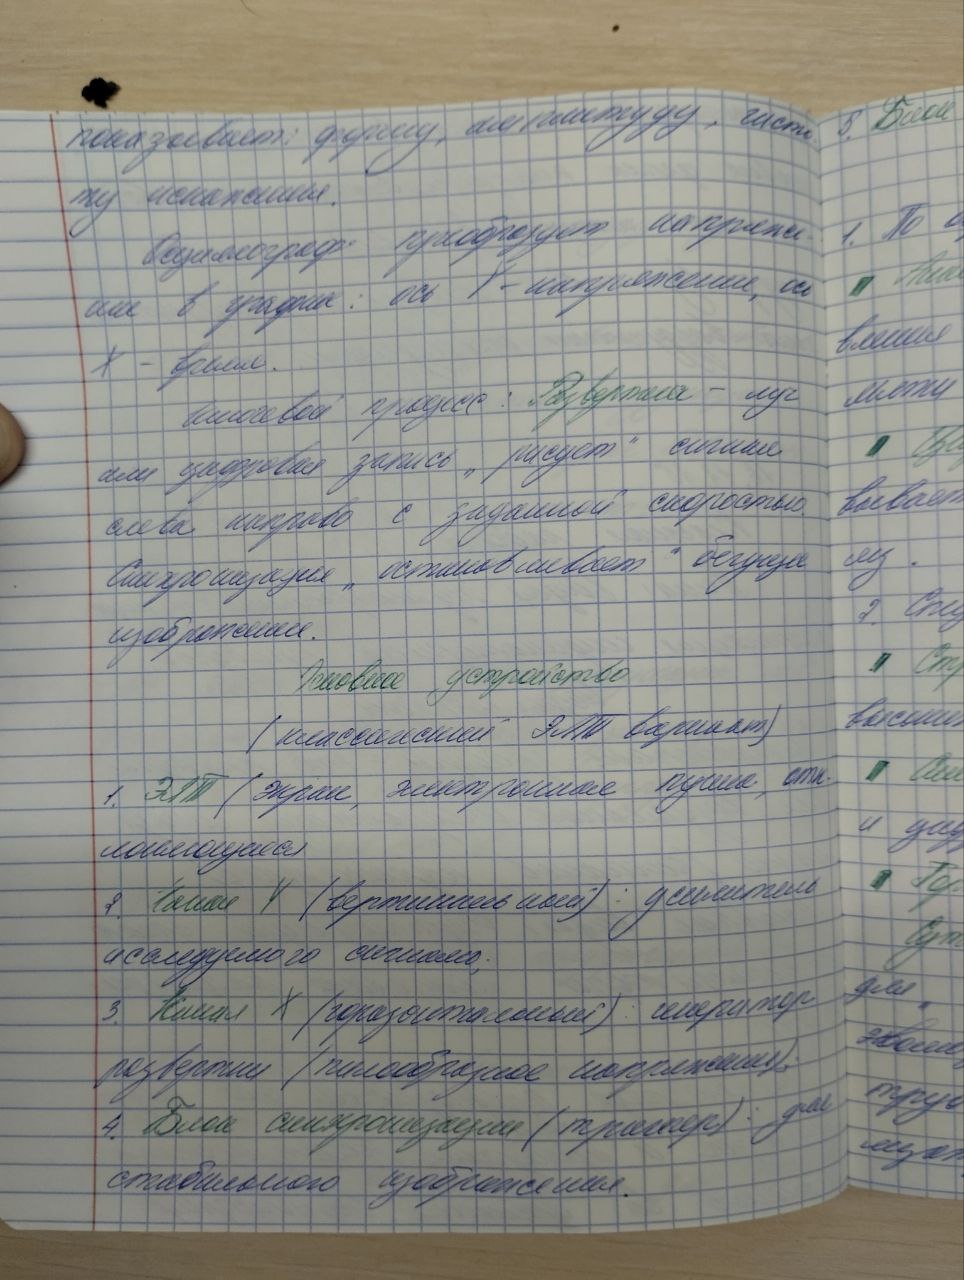 показывает: форму, амплитуду, часто-
ту искажения.
Осциллограф преобразует напряже-
ние в график: ось Y - напряжение, ось
X - время.
Ключевой процесс: Развертка - луч
или цифровая запись „рисует" сигнал
слева направо с заданной скоростью
Синхронизация „останавливает" бегущее
изображение.
Типовое устройство
(классический ЭЛТ вариант)
1. ЭЛТ (экран, электронная пушка, отк-
лоняющаяся
2. Канал Y (вертикальный): усилитель
исследуемого сигнала;
3. Канал X (горизонтальный): генератор
развертки (пилообразное напряжение).
4. Блок синхронизации (триггер): для
стабильного изображения.
5. Блок
1. По
вления
между
вывает
му.
2.
и
для